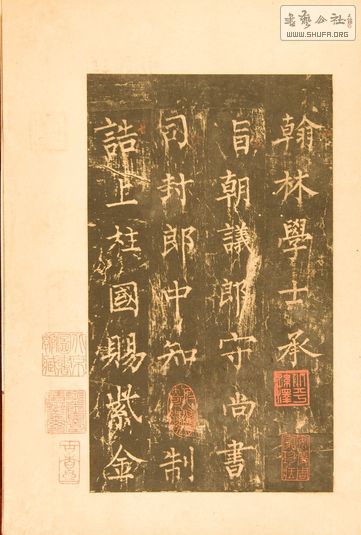 翰林學士承
旨朝議郎守尚書
司封郎中知 制
誥上柱國賜紫金
書藝公社
WWW.SHUFA.ORG